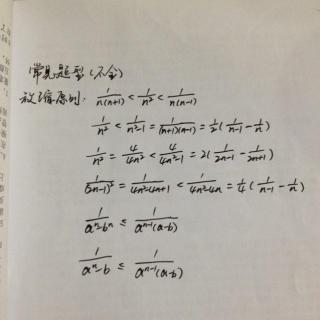 常见题型(不全)
放缩原则: 1/n(n+1) < 1/n² < 1/n(n-1)
1/n² < 1/n²-1 = 1/(n+1)(n-1) = 1/2(1/n-1 - 1/n)
1/n² = 4/4n² < 4/4n²-1 = 2(1/2n-1 - 1/2n+1)
1/(2n-1)² = 1/4n²-4n+1 < 1/4n²-4n = 1/4(1/n-1 - 1/n)
1/aⁿ-bⁿ ≤ 1/aⁿ⁻¹(a-b)
1/aⁿ-b ≤ 1/aⁿ⁻¹(a-b)